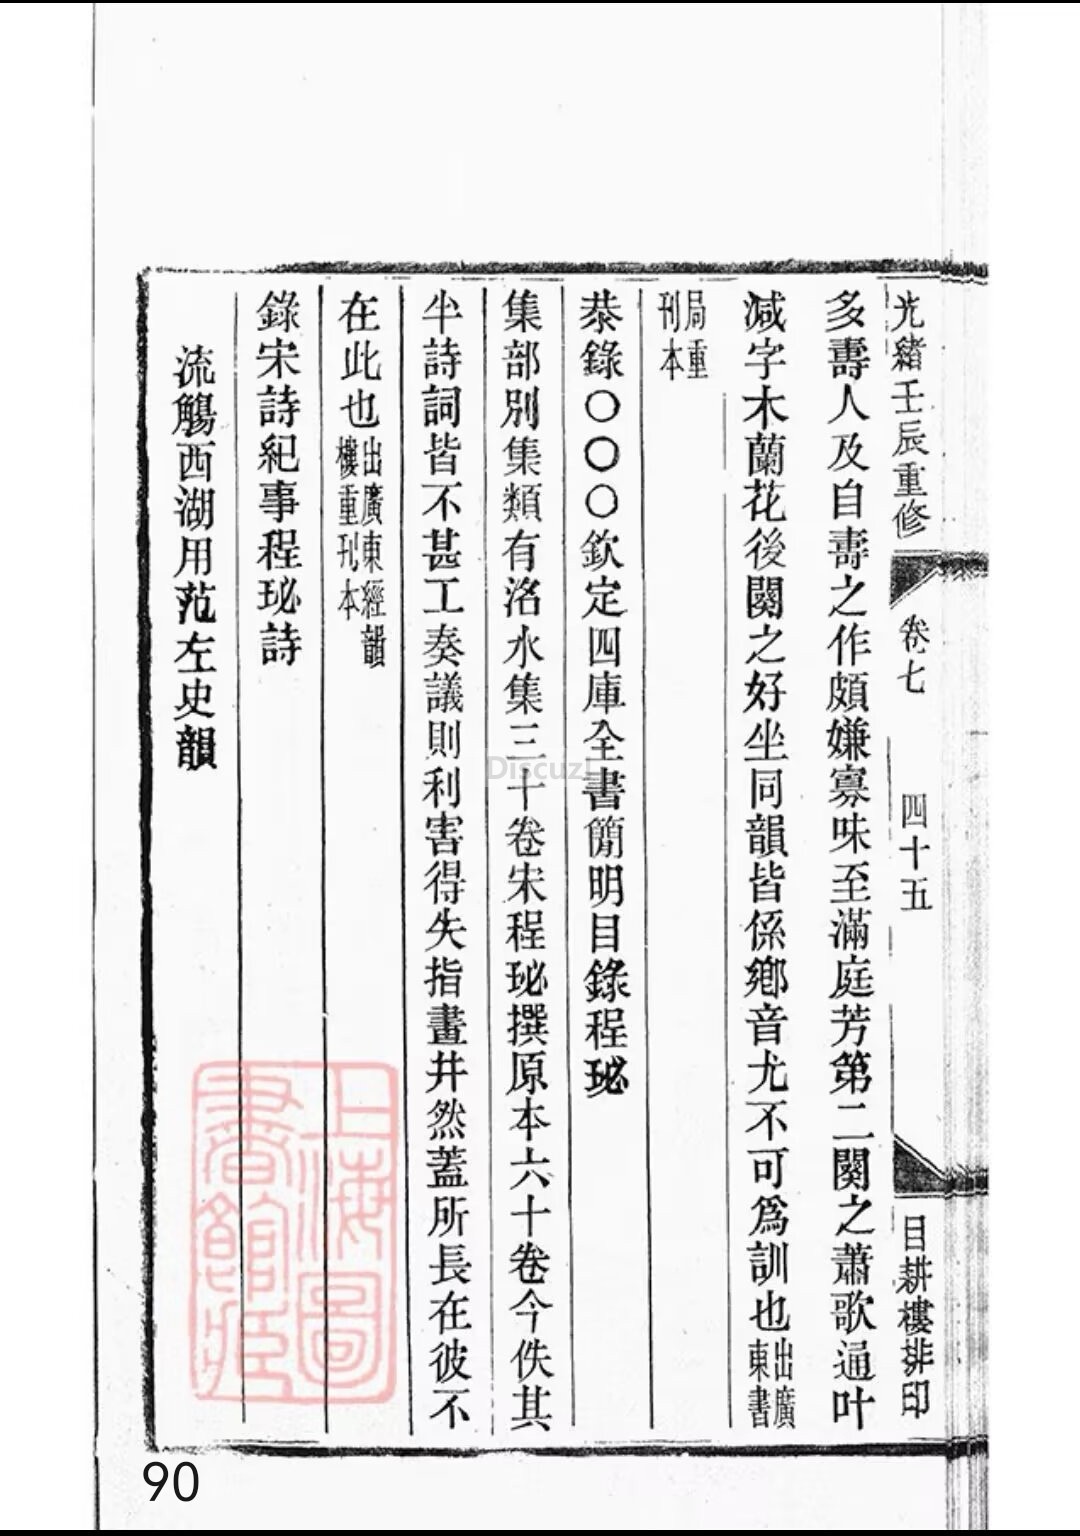 光緒壬辰重修 卷七 四十五 目耕樓排印
多壽人及自壽之作頗嫌寡味至滿庭芳第二闋之蕭歌通叶
減字木蘭花後闋之好坐同韻皆係鄉音尤不可爲訓也出廣東書
局重刊本
恭錄○○○欽定四庫全書簡明目錄程珌
集部別集類有洺水集三十卷宋程珌撰原本六十卷今佚其
半詩詞皆不甚工奏議則利害得失指畫井然蓋所長在彼不
在此也出廣東經韻樓重刊本
錄宋詩紀事程珌詩
流觴西湖用范左史韻
上海圖書館藏
Discuz!
90